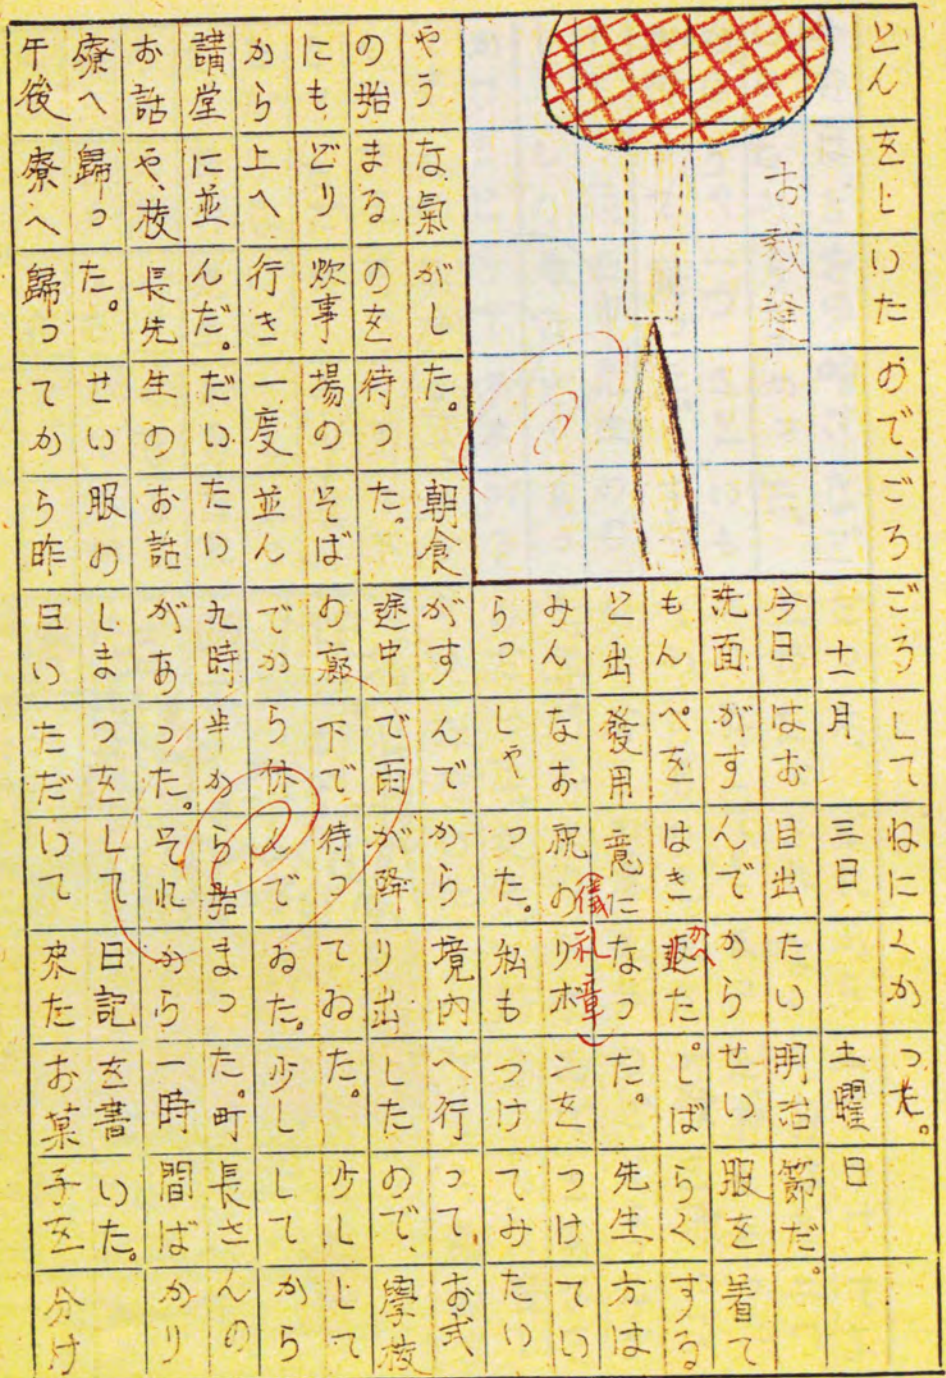 とんをしいたので、ごろごろしてねにくかった。
お裁縫
十一月三日土曜日
今日はお目出たい明治節だ。
洗面がすんでからせい服を着て
もんぺをはき返た。しばらくする
かへ
と出發用意になった。先生方は
みんなお祝のリボンをつけてい
(儀礼章)
らっしゃった。私もつけてみたい
やうな氣がした。朝食がすんでから境内へ行って、お式
の始まるのを待った。途中で雨が降り出したので、學校
にもどり炊事場のそばの廊下で待ってゐた。少しして
から上へ行き一度並んでから休んでゐた。少ししてから
講堂に並んだ。だいたい九時半から始まった。町長さんの
お話や、校長先生のお話があった。それから一時間ばかり
寮へ歸った。せい服のしまつをして日記を書いた。
午後寮へ歸ってから昨日いただいて來たお菓子を分け